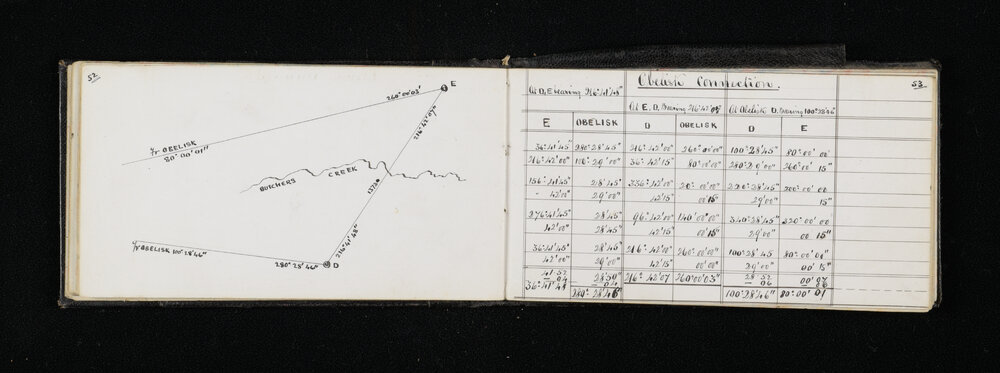 52
E
260°00'03"
216°42'07"
fr OBELISK
80°00'01"
BUTCHERS CREEK
1372.0
216°41'48"
fr OBELISK 100°28'46"
280°28'46" D
53
Obelisk Connection.
At D, E bearing 216°41'45"
At E, D, Bearing 216°42'07" At Obelisk D, bearing 100°28'46"
E OBELISK D OBELISK D E
36°41'45" 280°28'45" 216°42'00" 260°00'00" 100°28'45" 80°00 00
216°42'00" 100°29'00" 36°42'15" 80°00'00" 280°29'00" 260°00'15"
156°41'45" 28'45" 336°42'00" 20°00'00" 220°28'45" 200°00'00
42'00" 29'00" 42'15" 00'15" 29'00" 15"
276°41'45" 28'45" 96°42'00" 140°00'00" 340°28'45" 320°00'00
42'00" 28'45" 42'15 00'15" 29'00" 00 15"
36°41'45" 28'45" 216°42'00" 260°00'00" 100°28'45 80°00'00"
42'00" 29'00" 42'15 00'00" 29'00" 00'15"
41 52 28'50" 216°42'07 260°00'03" 28 52 00'07
04 04 06 06
36°41'48 280°28'46" 100°28'46" 80°00'01